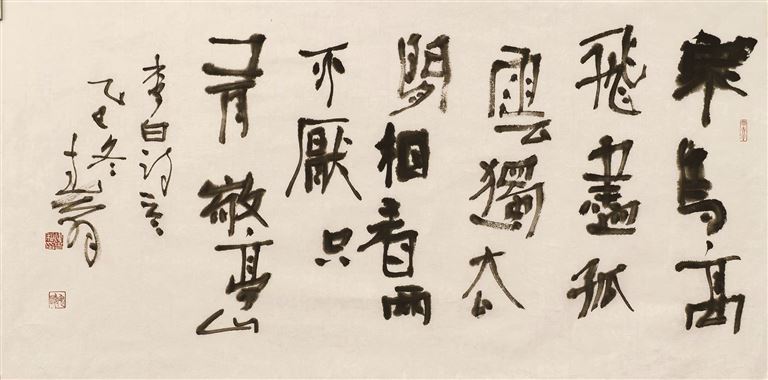 衆鳥高
飛盡孤
雲獨去
閒相看兩
不厭只
有敬亭山
李白詩意
乙巳冬